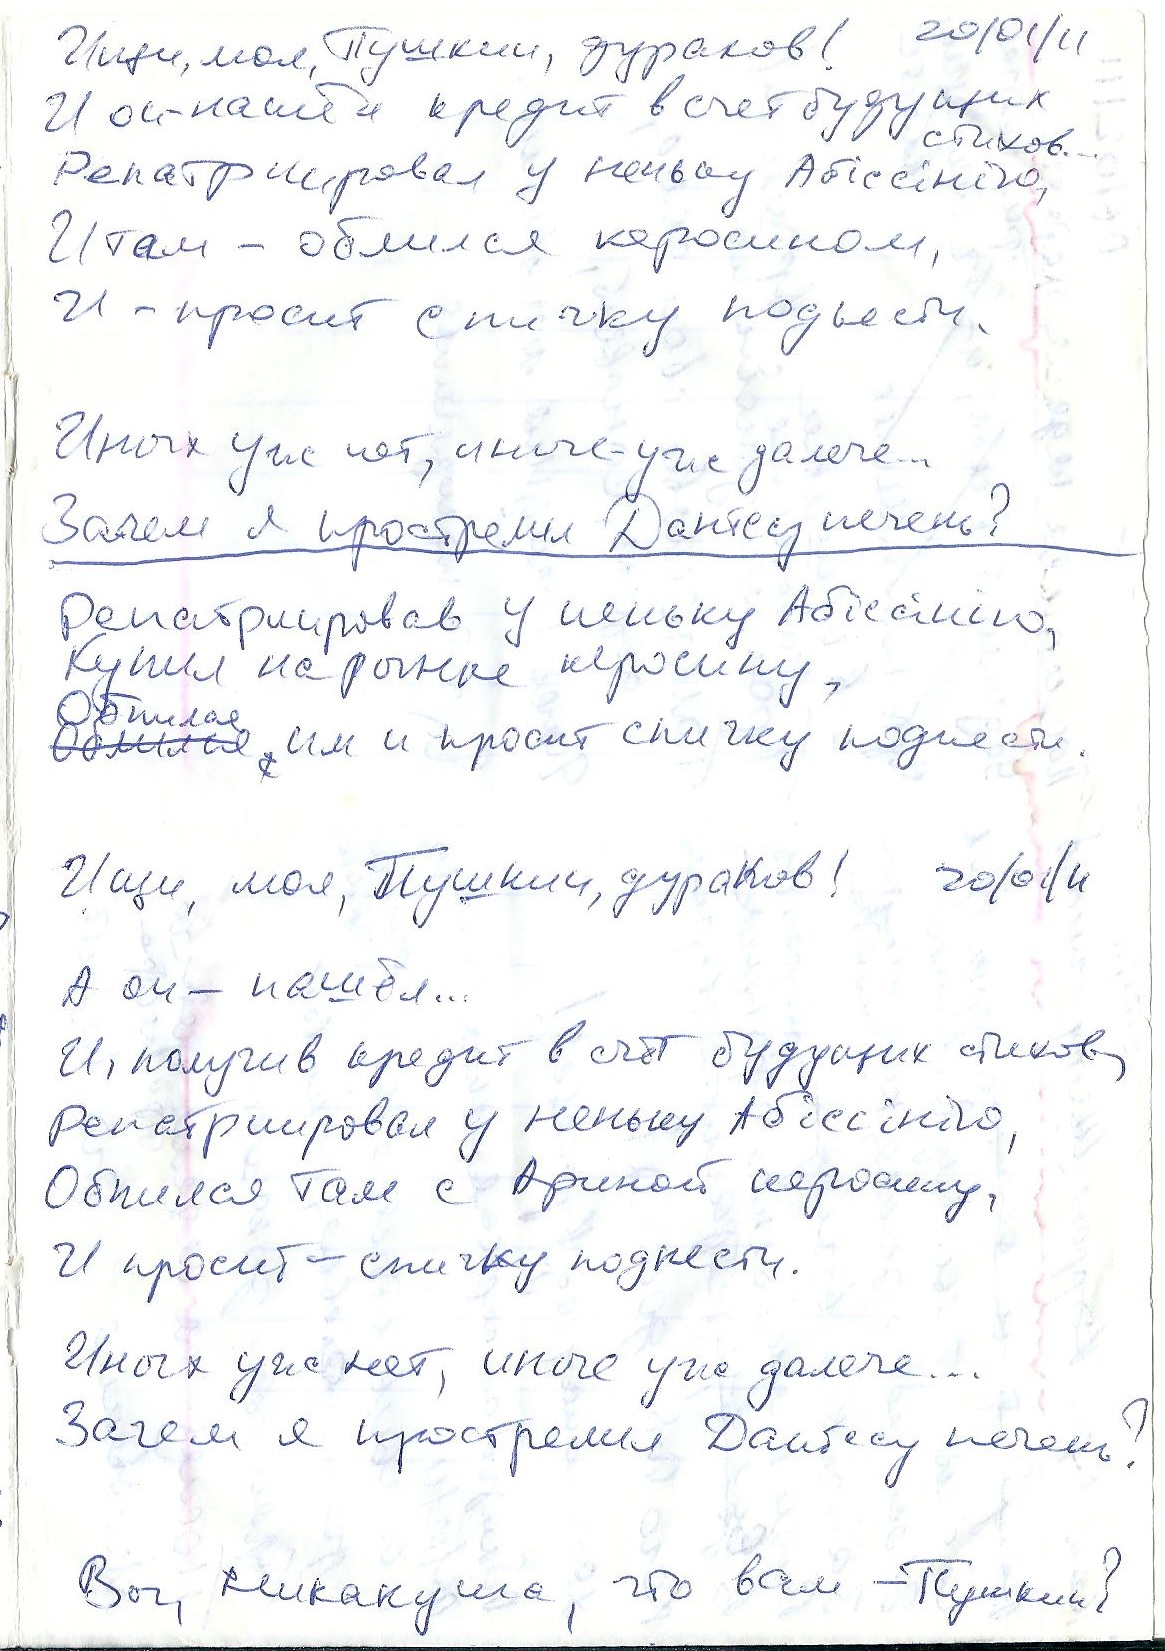 Ищи, мол, Пушкин, дураков! 20/01/11
И он-нашёл кредит в счет будущих
стихов...
Репатриировал у неньку Абіссінію,
И там – облился керосином,
И - просит спичку поднести.
Иных уж нет, иные-уже далече...
Зачем я прострелил Дантесу печень?
Репатриировав у неньку Абіссінію,
Купил на рынке керосину,
Обпился
Облился им и просит спичку поднести.
Ищи, мол, Пушкин, дураков! 20/01/11
А он – нашёл...
И, получив кредит в счёт будущих стихов,
Репатриировал у неньку Абіссінію,
Обпился там с Ариной керосину,
И просит – спичку поднести.
Иных уж нет, иные уж далече...
Зачем я прострелил Дантесу печень?
Вот, что вам – Пушкин?